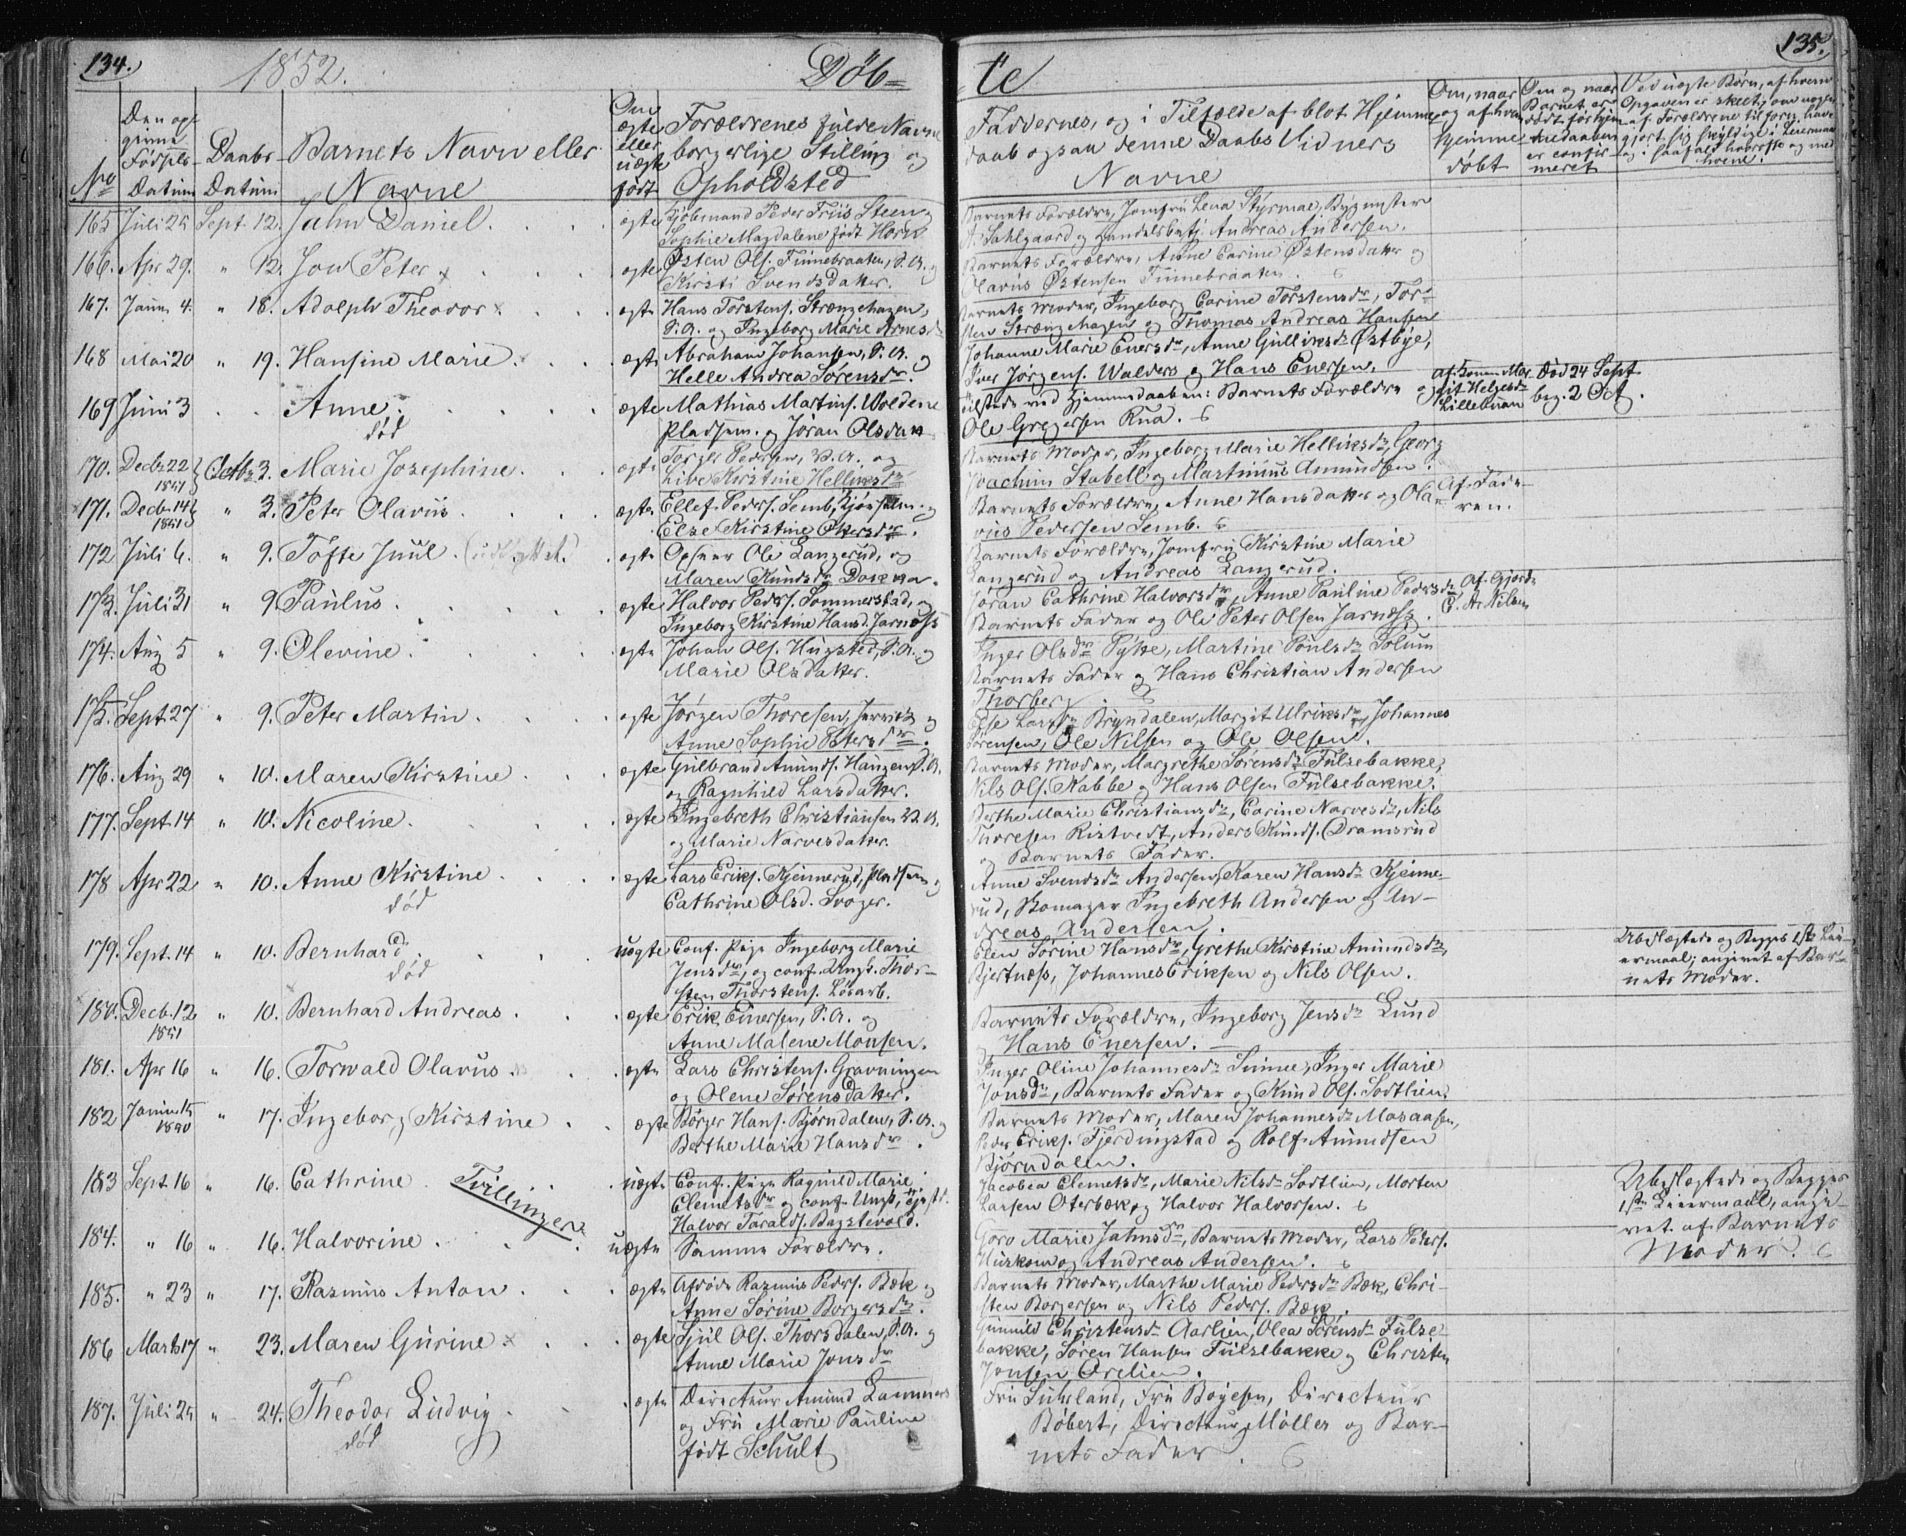 134.
1852.
Døb=
te
135.
No
Den op=
givne
Fødsels
Datum
Daabs
Datum
Barnets Navn eller
Navne
Om
ægte
eller
uægte
født
Forældrenes fulde Navne
borgerlige Stilling og
Opholdsted
Faddernes, og i Tilfælde af blot Hjemme
daab ogsaa denne Daabs Vidners
Navne
Om, naar
og af hvem
hjemme
døbt
Om og naar
Barnet er
født for hjem
medaaben
er confir
meret
Ved uægte Børn, af hvem
Opgaven er skeet, om nogen
af Forældrene tilforn have
gjort sig skyldige i Leiermaal
og i saafald hvorofte og med
hvem.
165 Juli 25 Sept 12. Jahn Daniel. ægte Kjøbmand Peder Friis Steen og
Sophie Magdalene født Horst
Barnets Forældre, Jomfru Lena Styrmae, Bygmester
Sahlgaard og Handelsbetj. Andreas Andersen.
166. Apr 29. " 12. Jon Peter ægte Østen Ols. Finnebraaten, S.A. og
Kirsti Svendsdatter.
Barnets Forældre, Anne Carine Østensdatter og
Olavus Østensen Finnebraaten.
167. Janu 4. " 18. Adolph Theodor ægte Hans Torstens. Strængehagen,
S.A. og Ingeborg Marie Arnesd
Barnets Moder, Ingeborg Carine Torstensdr, Tor=
sten Strængehagen og Thomas Andreas Hansen
168 Mai 20 " 19. Hansine Marie ægte Abraham Johansen, S.A. og
Helle Andrea Sørensdr.
Johanne Marie Enersdr, Anne Gulliksdr Østbye,
Iver Jørgens. Walders og Hans Enersen.
169 Juni 3 Anne.
død
ægte Mathias Martins. Woldene
Pladsem. og Jøran Olsdatt
Tilstede ved Hjemmedaaben: Barnets Forældre og
Ole Gregersen Rua.
af Konen Mar
git Helgesdr
Lillebuan
Død 24 Sept
beg. 2 Oct.
170. Decbr 22
1851
Octbr 3. Marie Josephine. ægte Torger Pedersen, S.A. og
Live Kirstine Helliksdr
Barnets Moder, Ingeborg Marie Helliksdr, Georg
Joachim Stabell og Martinus Amundsen.
171. Decbr 14
1851
" 3. Peter Olavus ægte Ellef Peders. Semb, Gjørtlem. og
Else Kirstine Ottersdr.
Barnets Forældre, Anne Hansdatter og Ola=
vus Pedersen Semb.
Af Fade=
ren.
172 Juli 6. " 9. Tøfte Juul. ægte Opsyner Ole Langerud, og
Maren Knudsdr Dokka.
Barnets Forældre, Jomfru Kirstine Marie
Langerud og Andreas Langerud.
173. Juli 31 " 9. Paulus. ægte Halvor Peders. Sommerstad, og
Ingeborg Kirstine Hansd. Jarnæss
Jøran Cathrine Halvorsdr, Anne Pauline Pedersdr
Barnets Fader og Ole Peter Olsen Jarnæss.
Af Gjordr
C. A. Nilsen
174. Aug 5 " 9. Olevine. ægte Johan Ols. Hugsted, S.A. og
Marie Olsdatter.
Inger Olsdr Pytte, Martine Poulsdr Solum
Barnets Fader og Hans Christian Andersen
Thorberg
175. Sept 27 " 9. Peter Martin ægte Jørgen Thoresen, og
Anne Sophie Petersdr.
Else Larsdr Bryndalen, Margit Ulriksdr, Johannes
Sørensen, Ole Nilsen og Ole Olsen.
176. Aug 29 " 10. Maren Kirstine ægte Gulbrand Amunds. Haugen, S.A.
og Ragnhild Larsdatter.
Barnets Moder, Margrethe Sørensdr Fulsebakke,
Nils Ols. Kabbe og Hans Olsen Fulsebakke.
177. Sept 14 " 10. Nicoline. ægte Ingebreth Christiansen S.A.
og Marie Narvesdatter.
Berthe Marie Christiansdr, Carine Narvesdr, Nils
Thoresen Ristvedt, Anders Knuds. Dramsrud
og Barnets Fader.
178 Apr 22 " 10. Anne Kirstine
død
ægte Lars Eriks. Kjennerud, Pladsem. og
Cathrine Olsd. Svager.
Anne Svendsdr Andersen, Karen Hansdr Kjenne=
rud, Skomager Ingebreth Andersen og An=
dreas Andersen.
179. Sept. 14 " 10. Bernhard
død
uægte Conf. Pige Ingeborg Marie
Jensdr, og conf. Ungk. Thor=
sten Thorstens. Løsarb.
Elen Sørine Hansdr, Grethe Kirstine Amundsdr
Bjertnæss, Johannes Eriksen og Nils Olsen.
Ubeslægtede og Begges 1ste Lei=
ermaal; angivet af Bar=
nets Moder.
180. Decb. 12
1851
" 10. Bernhard Andreas ægte Erik Enersen, S.A. og
Anne Malene Monsen.
Barnets Forældre, Ingeborg Jensdr Lund
og Hans Enersen.
181. Apr 16 " 16. Torwald Olavus ægte Lars Christens. Gravningen
og Olene Sørensdatter.
Inger Oline Johannesdr Linnee, Inger Marie
Jonsdr, Barnets Fader og Knud Ols. Sodtlien.
182 Janu 15
1850
" 17. Ingeborg Kirstine ægte Børger Hans. Bjørndalen, S.A. og
Berthe Marie Hansdr.
Barnets Moder, Maren Johannesdr Masaasen,
Peder Eriks. Fjerdingstad og Rolf Amundsen
Bjørndalen.
183 Sept. 16 " 16. Cathrine. Tvillinger uægte Conf. Pige Ragnild Marie
Clemetsdr og conf. Ungk.
Halvor Taralds. Bagstevold.
Jacobea Clemetsdr, Marie Nilsdr Sodtlien, Morten
Larsen Oterbæk, og Halvor Halvorsen.
Ubeslægtede og Begges
1ste Leiermaal, angi=
vet af Barnets
Moder.
184. " 16 " 16. Halvorine. uægte Samme Forældre.
Goro Marie Jahnsdr, Barnets Moder, Lars Peders.
Huskom og Andreas Andersen.
185. " 23 " 17. Rasmus Anton ægte Afdøde Rasmus Peders. Bæk og
Anne Sørine Borgersdr.
Barnets Moder, Marthe Marie Pedersdr Bæk, Chri=
sten Borgersen og Nils Peders. Bæk.
186 Marts 17 " 23. Maren Gurine ægte Juil Ols. Thorsdalen, S.A. og
Anne Marie Jonsdr
Gunnild Christensdr Aarlien, Olea Sørensdr Fulse=
bakke, Søren Hansen Fulsebakke og Christen
Jonsen Ørelien.
187. Juli 25 " 24. Theodor Ludvig
død
ægte Directeur Amund Lammers
og Fru Marie Pauline
født Schult
Fru Suhrland, Fru Boyesen, Directeur
Bøbert, Directeur Møller og Bar=
nets Fader